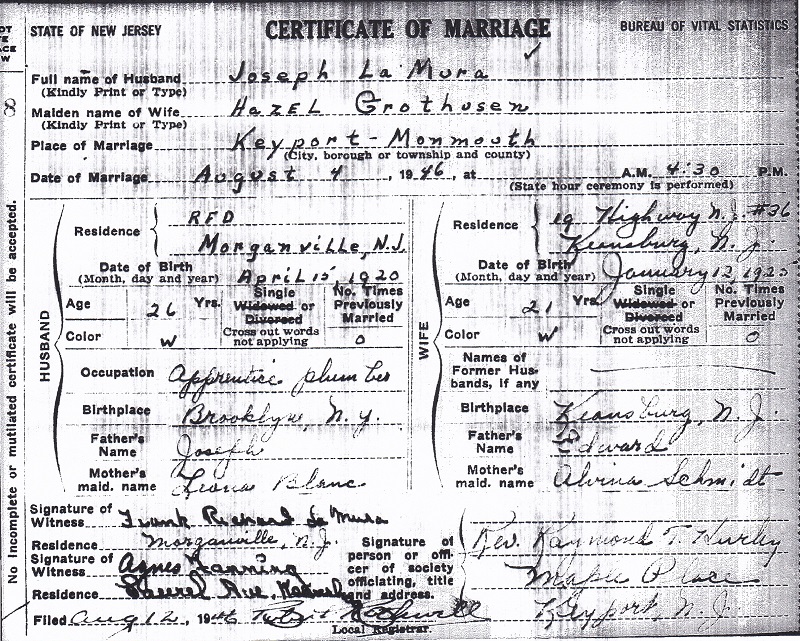 STATE OF NEW JERSEY CERTIFICATE OF MARRIAGE BUREAU OF VITAL STATISTICS
Full name of Husband Joseph La Mura
(Kindly Print or Type)
Maiden name of Wife Hazel Grothusen
(Kindly Print or Type)
Place of Marriage Keyport - Monmouth
(City, borough or township and county)
Date of Marriage August 4, 1946, at A.M. 4:30 P.M.
(State hour ceremony is performed)
HUSBAND
Residence RFD
Morganville, N.J.
Date of Birth
(Month, day and year) April 15, 1920
Age 26 Yrs. Single Widowed or Divorced
Cross out words not applying
No. Times Previously Married
Color W 0
Occupation Apprentice plumber
Birthplace Brooklyn, N.Y.
Father's Name Joseph
Mother's maid. name Blanc
WIFE
Residence Highway N.J. #36
Keansburg, N.J.
Date of Birth
(Month, day and year) January 12, 1925
Age 21 Yrs. Single Widowed or Divorced
Cross out words not applying
No. Times Previously Married
Color W 0
Names of Former Husbands, if any
Birthplace Keansburg, N.J.
Father's Name Edward
Mother's maid. name Alvina Schmidt
Signature of Witness Frank Richard La Mura
Residence Morganville, N.J.
Signature of Witness Agnes Fanning
Residence Laurel Ave,
Signature of person or officer of society officiating, title and address.
Rev. Raymond T. Hurley
Maple Place
Keyport, N.J.
Filed Aug 12, 1946
Local Registrar.
No Incomplete or mutilated certificate will be accepted.
8